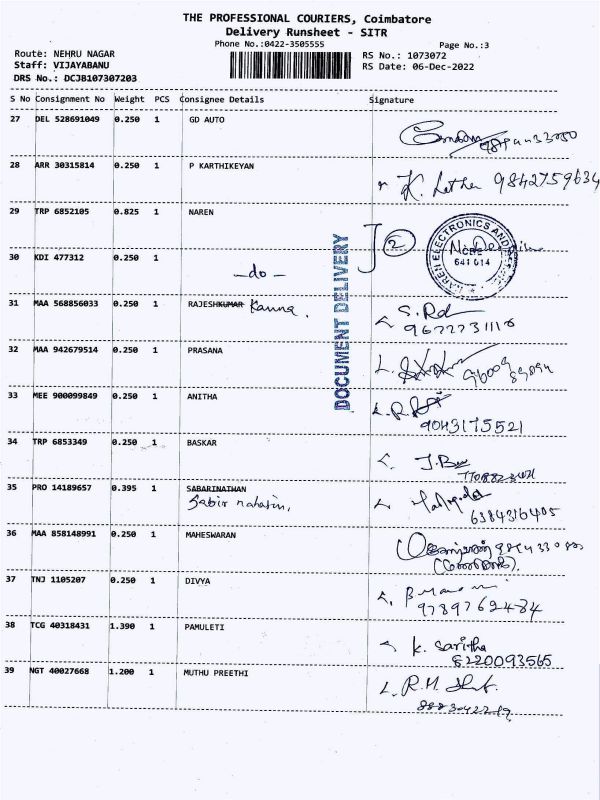 THE PROFESSIONAL COURIERS, Coimbatore
Delivery Runsheet - SITR
Phone No.:0422-3505555 Page No.:3
Route: NEHRU NAGAR RS No.: 1073072
Staff: VIJAYABANU RS Date: 06-Dec-2022
DRS No.: DCJB107307203
S No Consignment No Weight PCS Consignee Details Signature
27 DEL 528691049 0.250 1 GD AUTO
28 ARR 30315814 0.250 1 P KARTHIKEYAN K. 9842759634
29 TRP 6852105 0.825 1 NAREN 2
ELECTRONICS AND
641 014
30 KDI 477312 0.250 1 -do-
DOCUMENT DELIVERY
31 MAA 568856033 0.250 1 RAJESHKUMAR Kanna. S.
32 MAA 942679514 0.250 1 PRASANA
33 MEE 900099849 0.250 1 ANITHA
9043175521
34 TRP 6853349 0.250 1 BASKAR
35 PRO 14189657 0.395 1 SABARINATHAN
6384316405
36 MAA 858148991 0.250 1 MAHESWARAN
37 TNJ 1105207 0.250 1 DIVYA
9789762484
38 TCG 40318431 1.390 1 PAMULETI K. Saritha
8220093565
39 NGT 40027668 1.200 1 MUTHU PREETHI R.M.